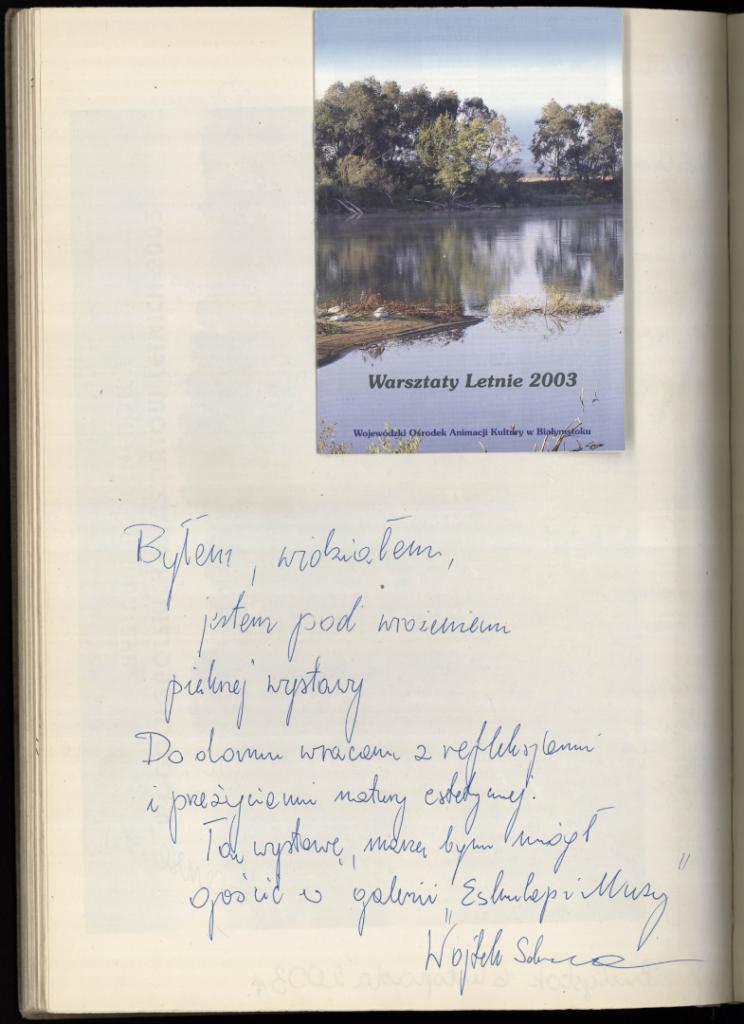 Warsztaty Letnie 2003
Wojewódzki Ośrodek Animacji Kultury w Białymstoku
Byłem, widziałem,
jestem pod wrażeniem
pięknej wystawy
Do domu wracam z refleksjami
i przeżyciami natury estetycznej.
Tą wystawę, marzę bym mógł
gościć w galerii „Eskulap i Muzy"
Wojtek